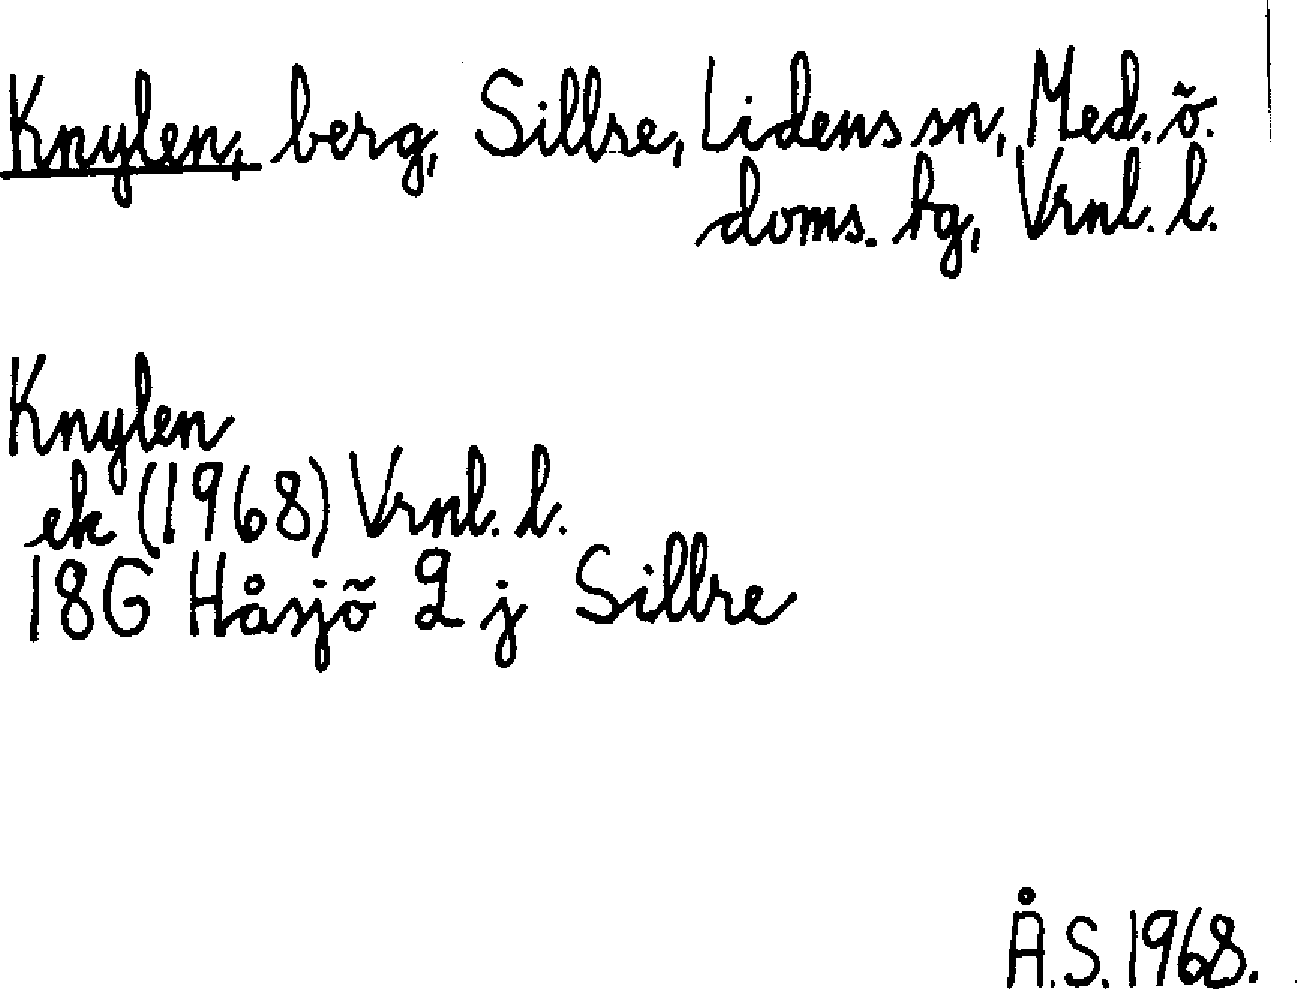 Knylen, berg, Sillre, Lidens sn, Med. ö.
doms. hg, Vrnl. l.
Knylen
ek (1968) Vrnl. l.
18G Håsjö 2 j Sillre
Å.S. 1968.